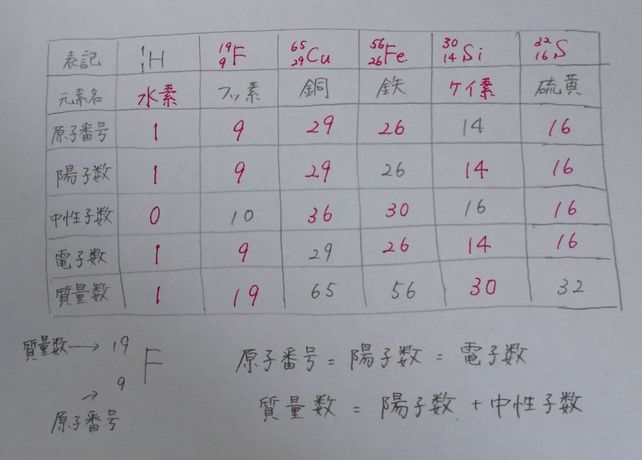 表記 ¹₁H ¹⁹₉F ⁶⁵₂₉Cu ⁵⁶₂₆Fe ³⁰₁₄Si ³²₁₆S
元素名 水素 フッ素 銅 鉄 ケイ素 硫黄
原子番号 1 9 29 26 14 16
陽子数 1 9 29 26 14 16
中性子数 0 10 36 30 16 16
電子数 1 9 29 26 14 16
質量数 1 19 65 56 30 32
質量数→ 19
F
9
→
原子番号
原子番号 = 陽子数 = 電子数
質量数 = 陽子数 + 中性子数